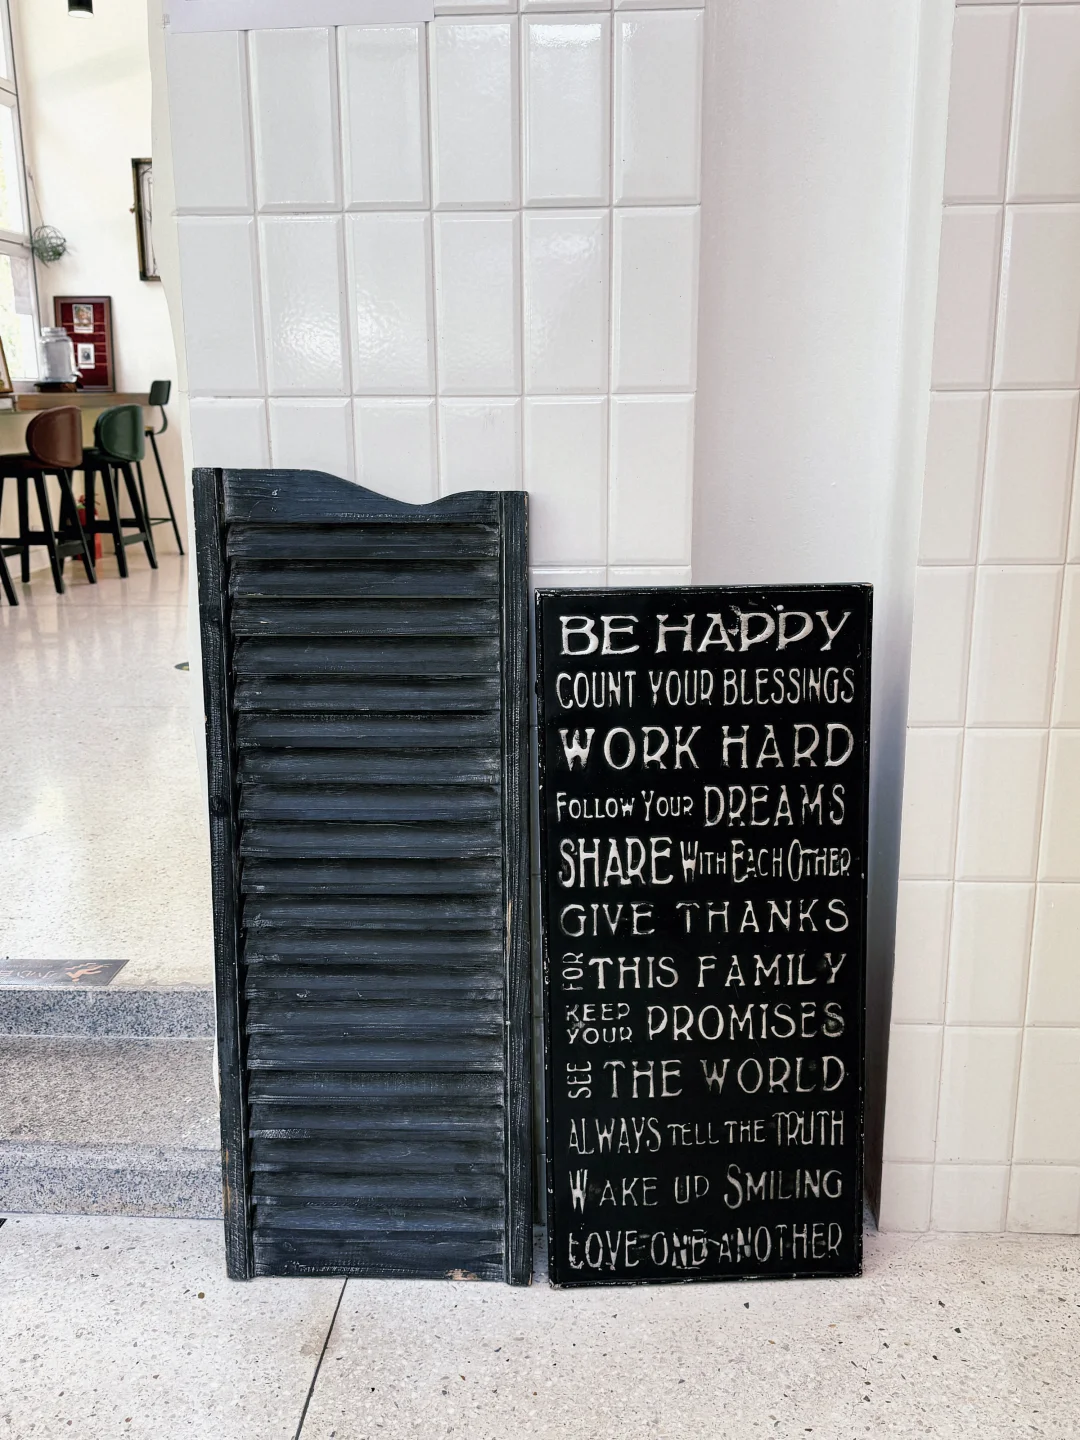 BE HAPPY
COUNT YOUR BLESSINGS
WORK HARD
FOLLOW YOUR DREAMS
SHARE WITH EACH OTHER
GIVE THANKS
FOR THIS FAMILY
KEEP YOUR PROMISES
SEE THE WORLD
ALWAYS TELL THE TRUTH
WAKE UP SMILING
LOVE ONE ANOTHER